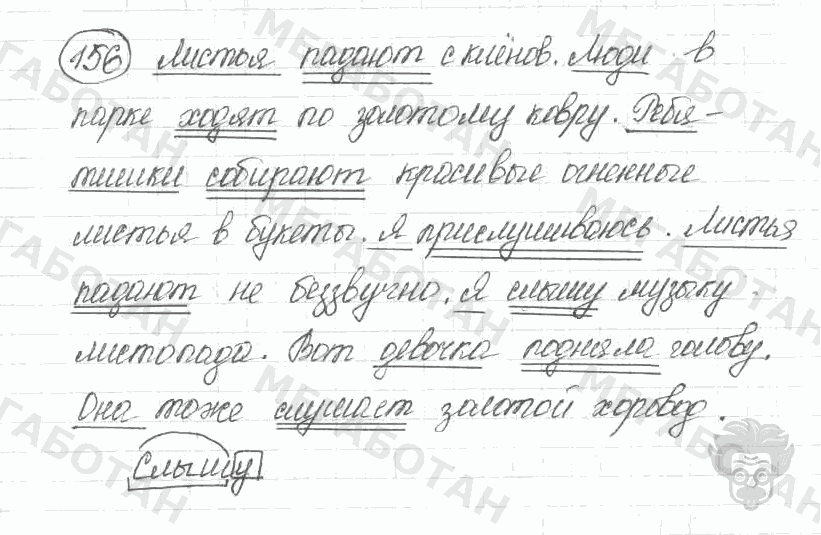 156 Листья падают с клёнов. Люди в
парке ходят по золотому ковру. Ребя-
тишки собирают красивые огненные
листья в букеты. Я прислушиваюсь. Листья
падают не беззвучно. Я слышу музыку
листопада. Вот девочка подняла голову.
Она тоже слушает золотой хоровод.
Слышу
МЕГАБОТАН